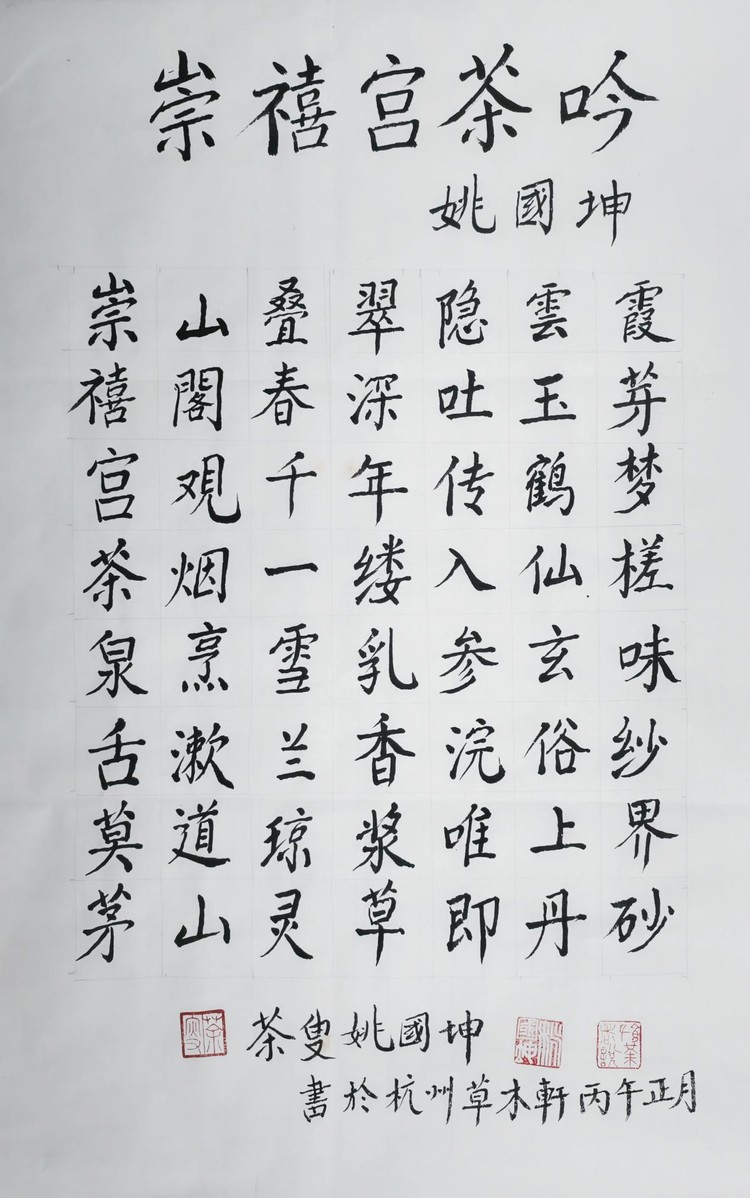 崇禧宫茶吟
姚國坤
崇山叠翠隐雲霞
禧閣春深吐玉芽
宫观千年传鹤梦
茶烟一缕入仙槎
泉烹雪乳参玄味
舌漱兰香浣俗纱
莫道琼浆唯上界
茅山灵草即丹砂
茶叟姚國坤
書於杭州草木軒丙午正月